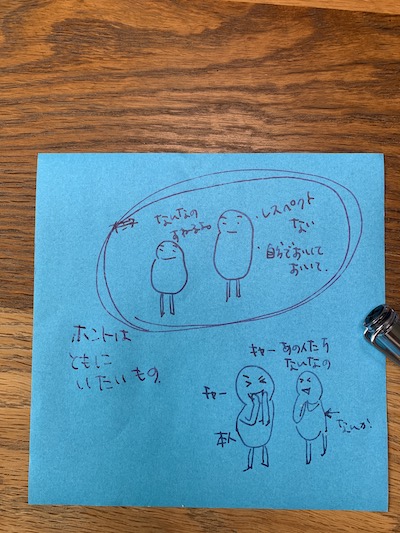 なんなの
・レスペクト
ない
・自分でおいて
おいて.
ホントは
ともに
いたいもの
キャー あの人たち
なんなの
キャー
本人
なんか